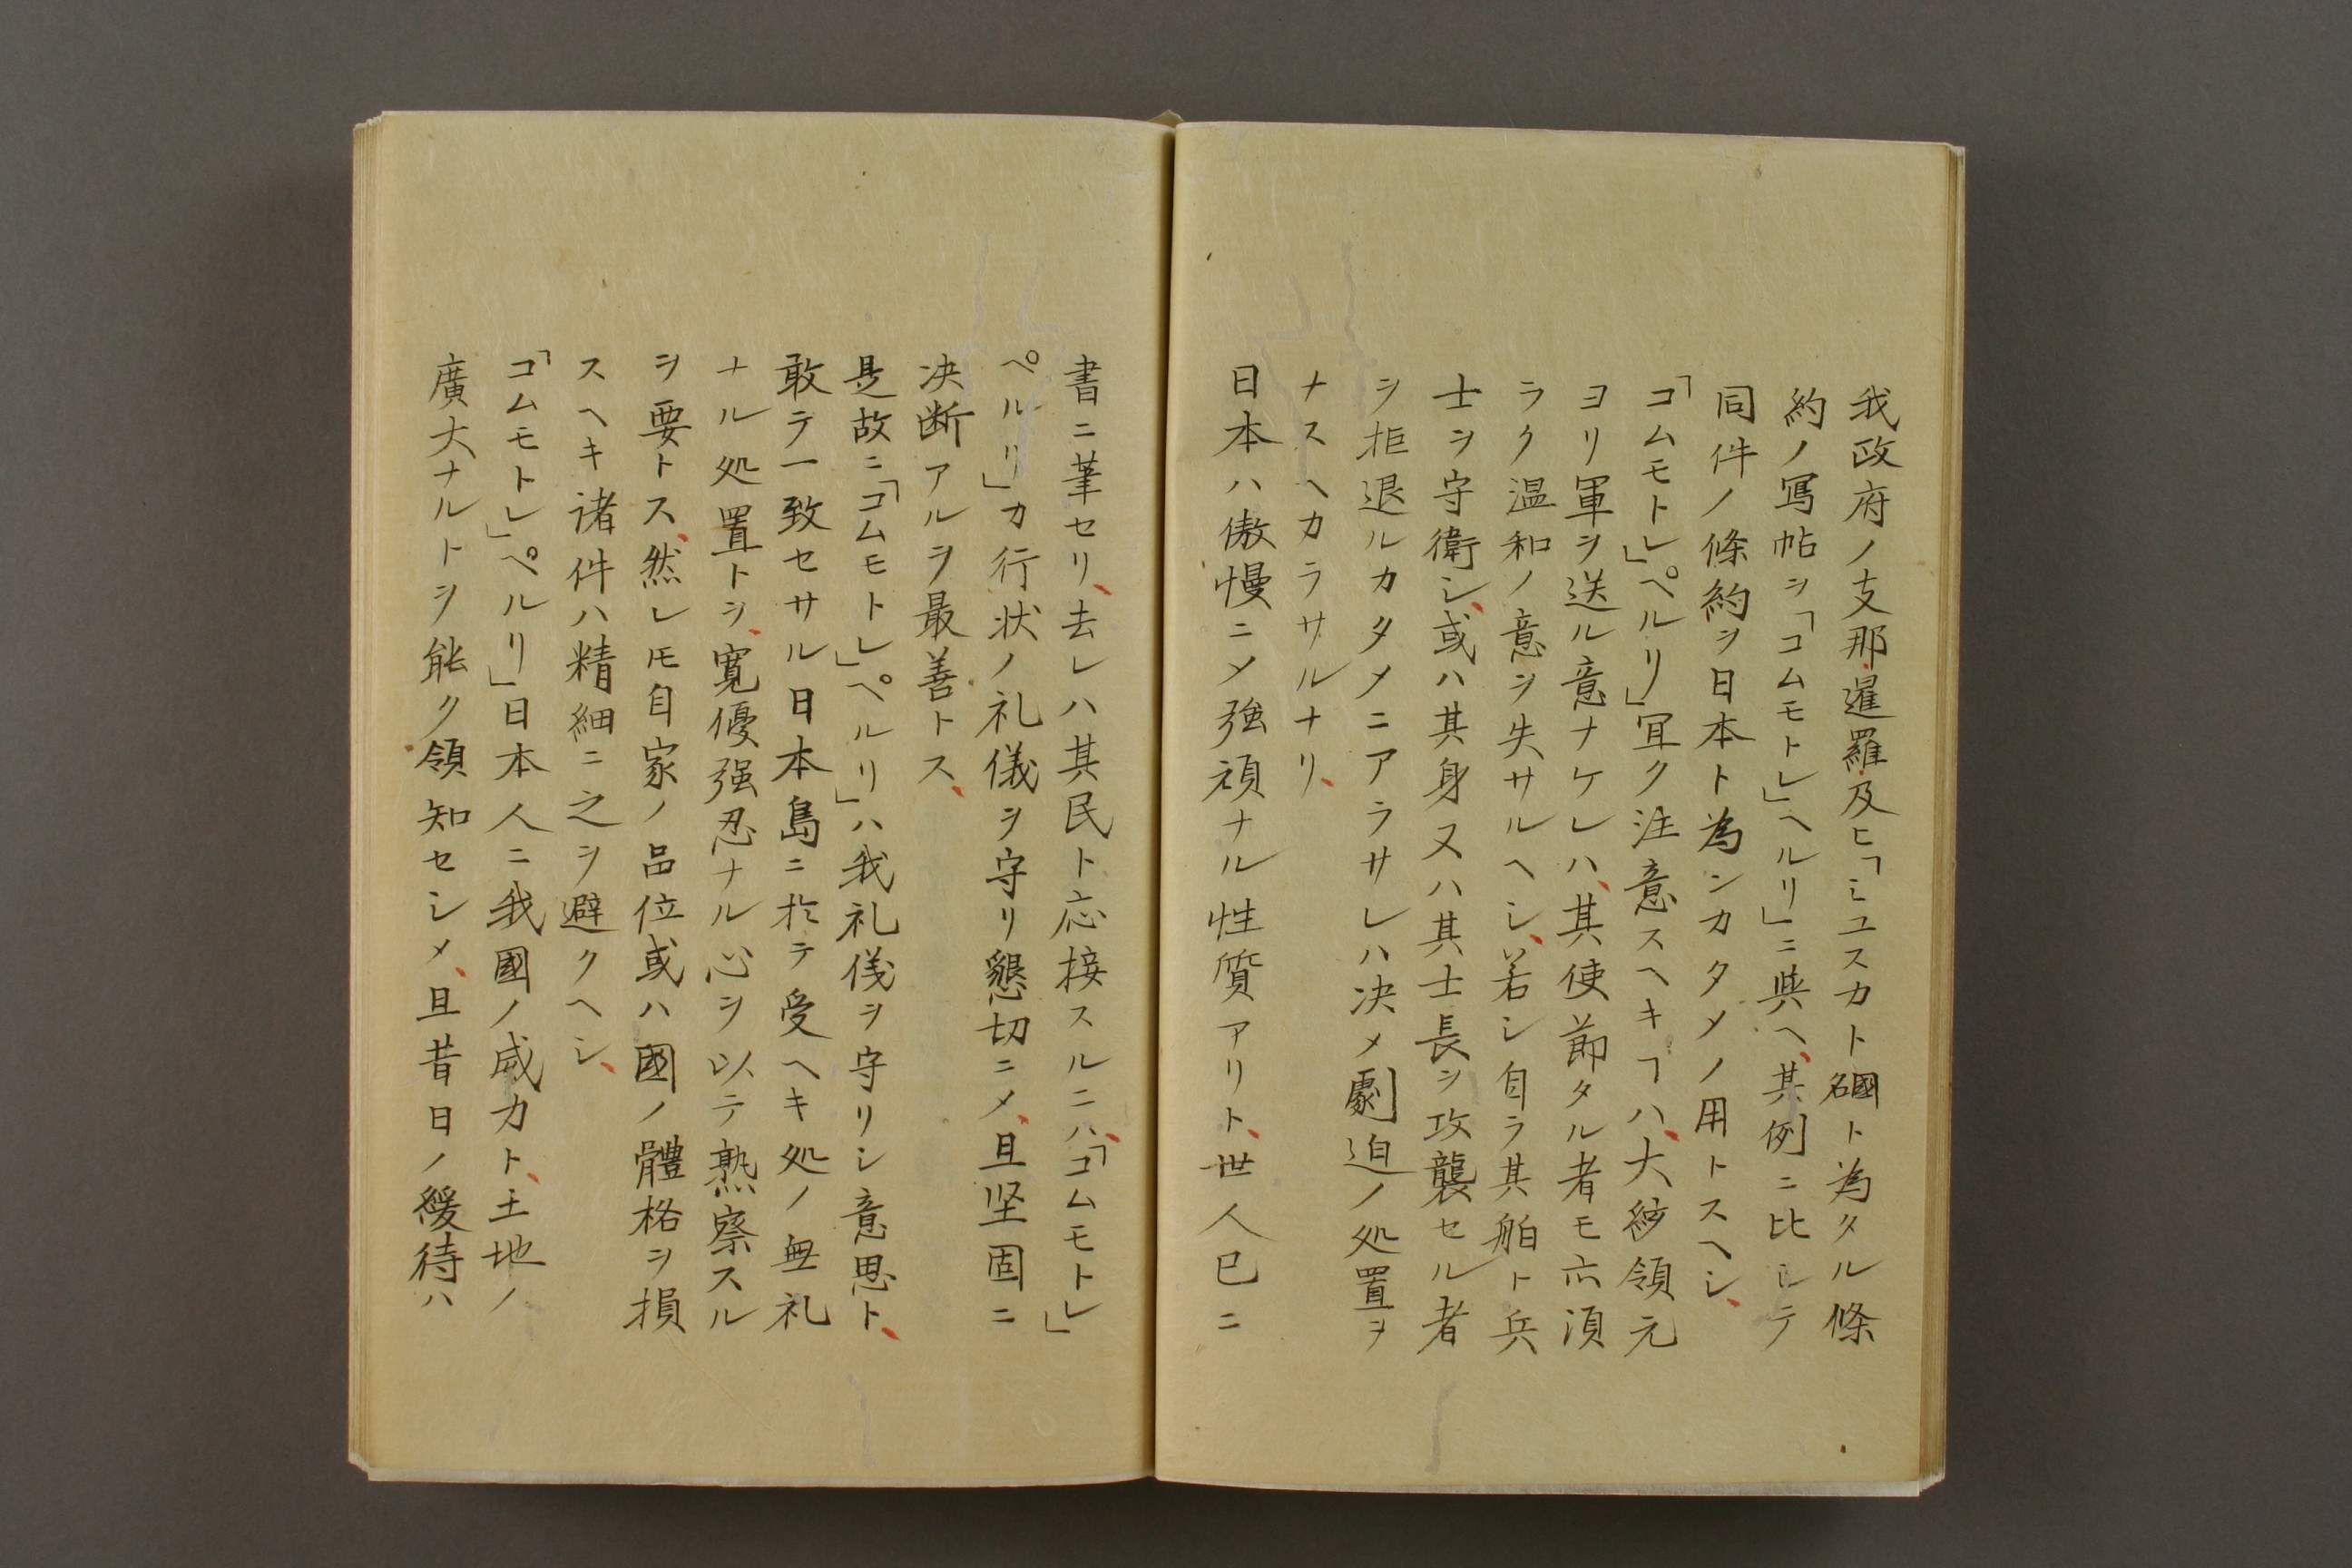 我政府ノ支那、暹羅、及ヒ「ミユスカト」國ト為タル條
約ノ寫帖ヲ「コムモトレ」ヘルリ」ニ與ヘ、其例ニ比シテ
同件ノ條約ヲ日本ト為ンカタメノ用トスヘシ、
「コムモトレ」ペルリ」宜ク注意スヘキヿハ、大統領元
ヨリ軍ヲ送ル意ナケレハ、其使節タル者モ亦須
ラク温和ノ意ヲ失サルヘシ、若シ自ラ其舶ト兵
士ヲ守衛シ、或ハ其身又ハ其士長ヲ攻襲セル者
ヲ拒退ルカタメニアラサレハ决メ劇迫ノ処置ヲ
ナスヘカラサルナリ、
日本ハ傲慢ニメ強頑ナル性質アリト、世人已ニ
書ニ筆セリ、去レハ其民ト応接スルニハ、「コムモトレ」
ペルリ」カ行状ノ礼儀ヲ守リ懇切ニメ、且坚固ニ
决断アルヲ最善トス、
是故ニ「コムモトレ」ペルリ」ハ我礼儀ヲ守リシ意思ト、
敢テ一致セサル日本島ニ於テ受ヘキ処ノ無礼
ナル処置トヲ、寛優强忍ナル心ヲ以テ熟察スル
ヲ要トス、然レ𪜈自家ノ品位或ハ國ノ體格ヲ損
スヘキ諸件ハ精細ニ之ヲ避クヘシ、
「コムモトレ」ペルリ」日本人ニ我國ノ威力ト、土地ノ
廣大ナルトヲ能ク領知セシメ、且昔日ノ緩待ハ